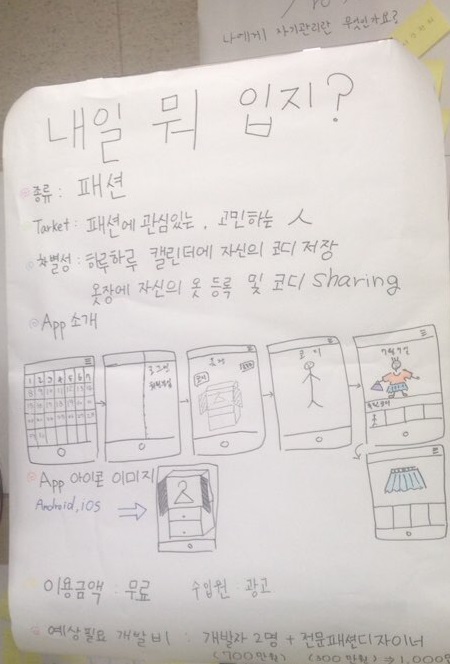 나에게 자기관리란 무엇인가요?
내일 뭐 입지?
종류 : 패션
Tarket : 패션에 관심있는, 고민하는 人
차별성 : 하루하루 캘린더에 자신의 코디 저장
옷장에 자신의 옷 등록 및 코디 Sharing
App 소개
1 2 3 4 5 6 7
로그인
회원가입
옷장
코디
App 아이콘 이미지
Android, iOS
이용금액 : 무료 수입원 : 광고
예상필요 개발비 : 개발자 2명 + 전문패션디자이너
(700만원) (300만원) ⇒ 1,000